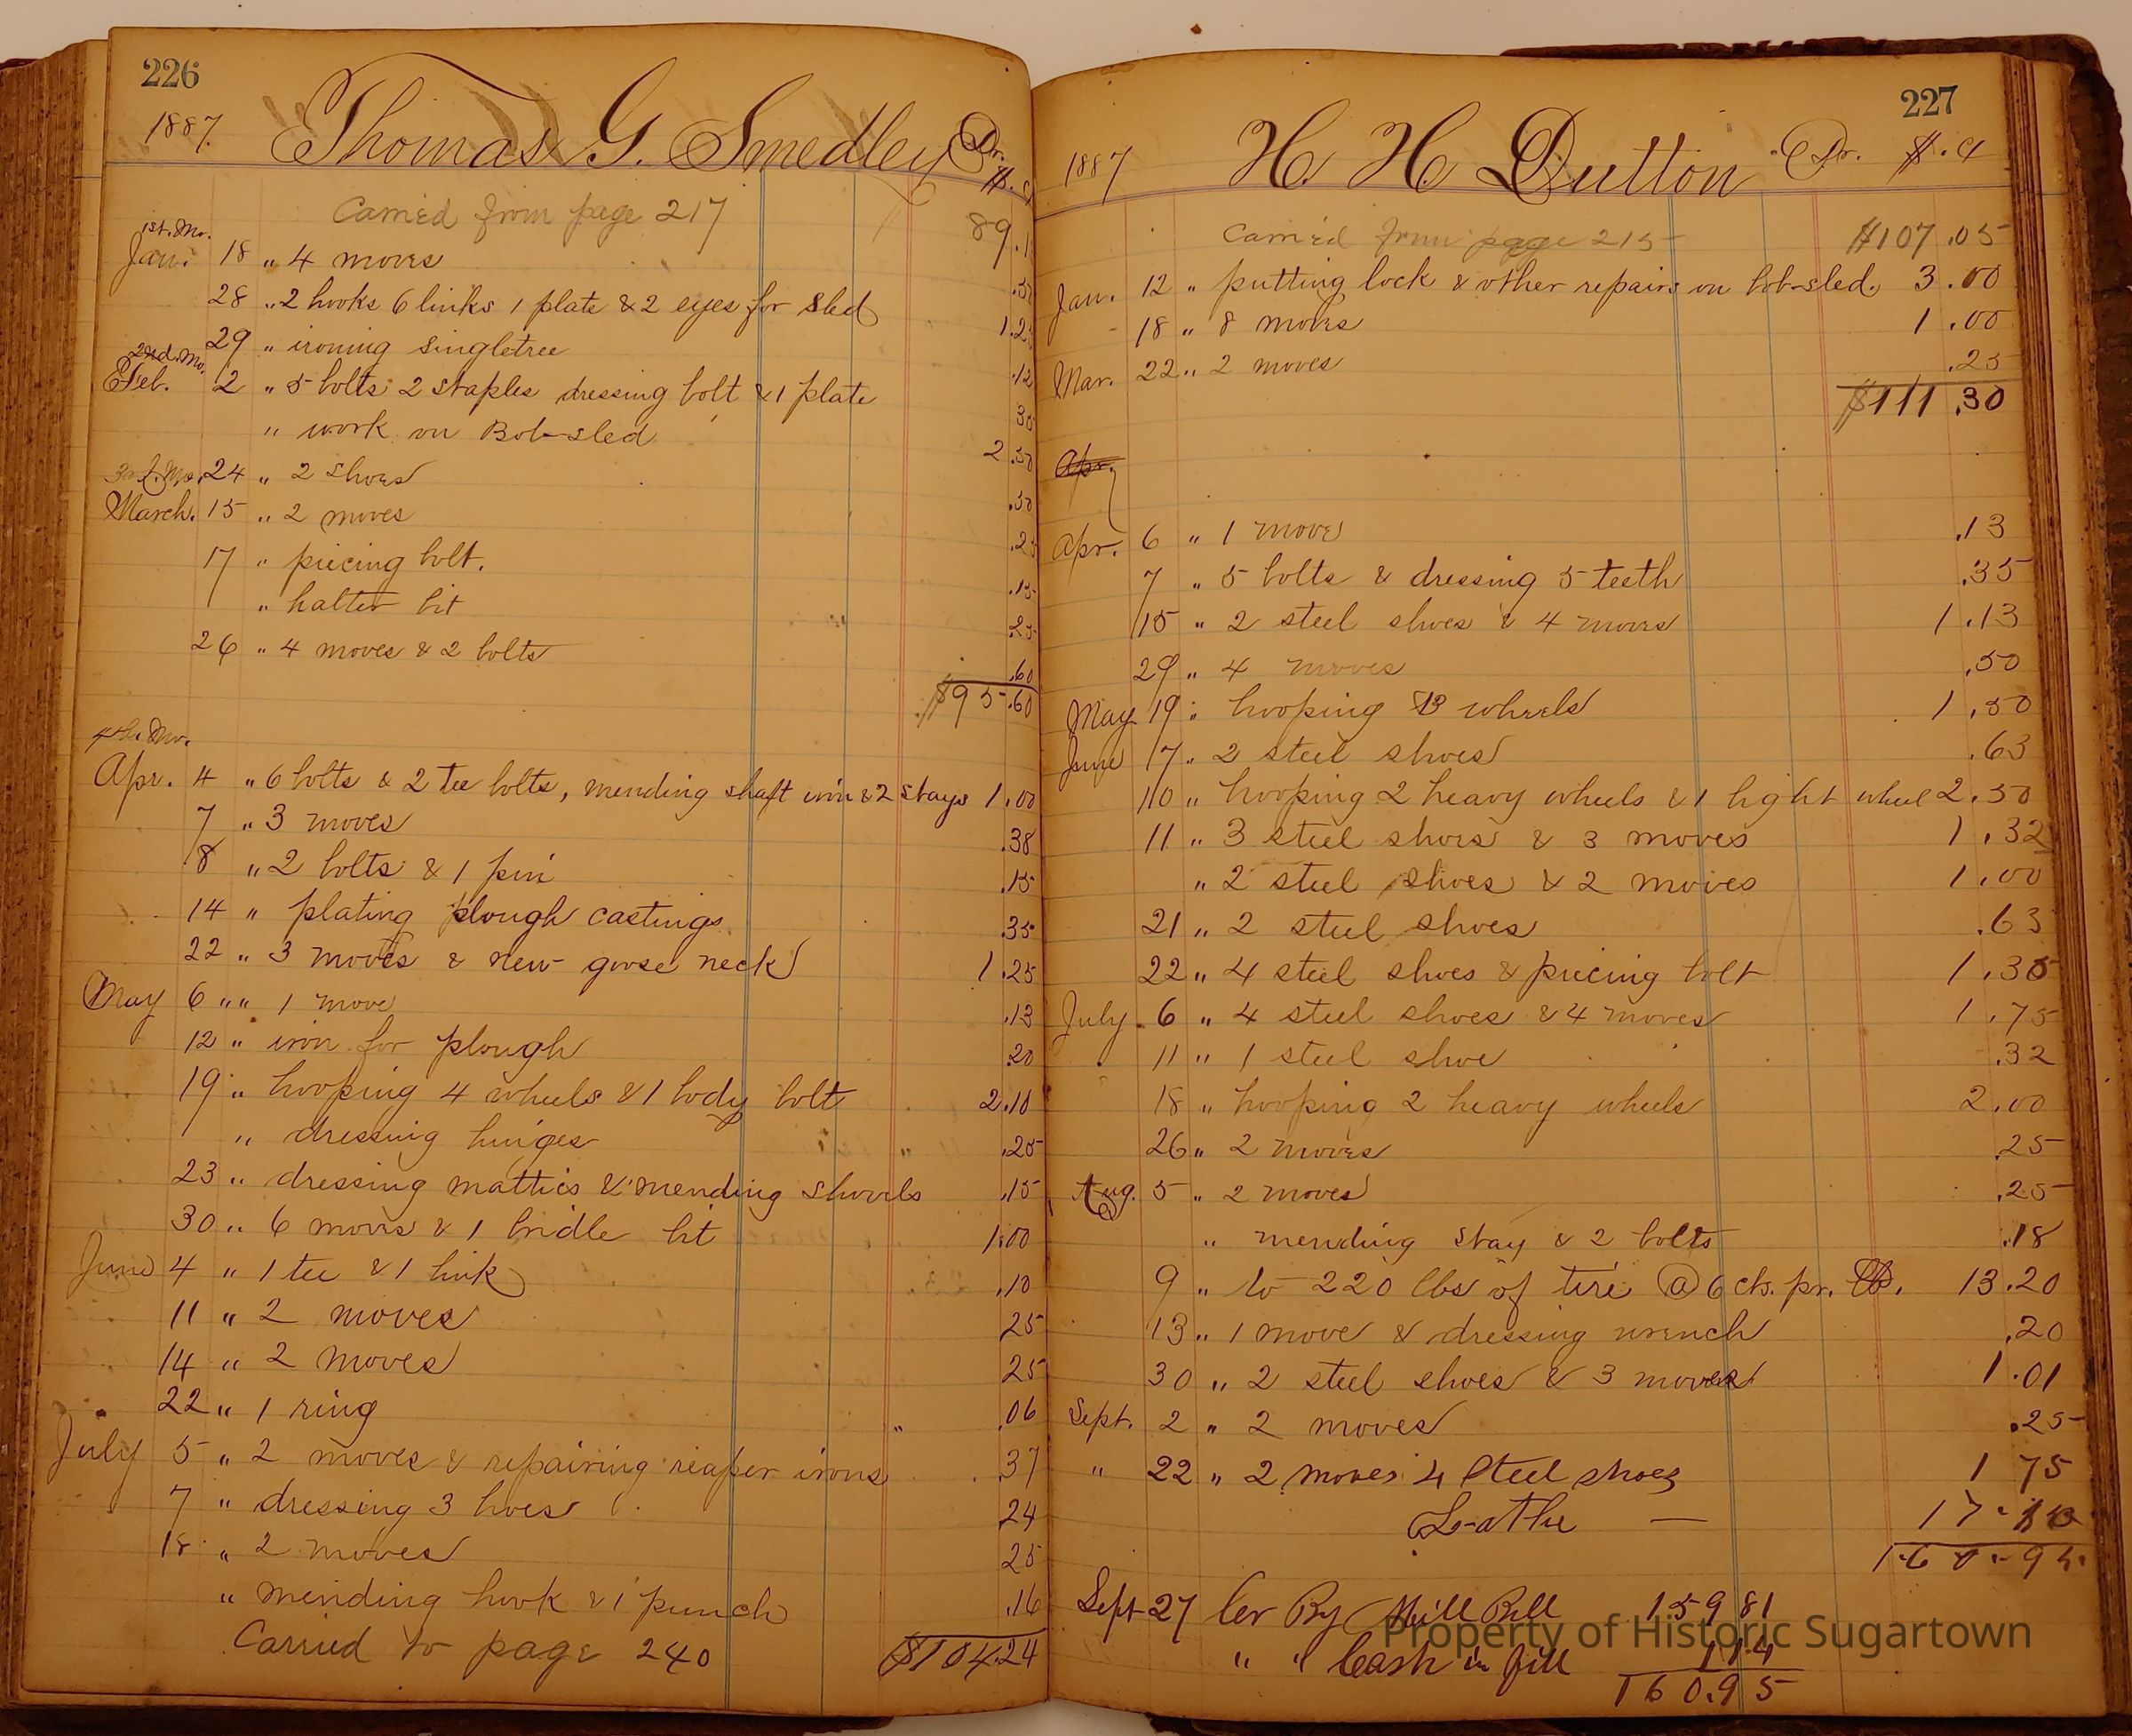 226
1887. Thomas G. Smedley Dr.
Carried from page 217 89.1
1st. Mo.
Jan. 18 " 4 moves .50
28 " 2 hooks 6 links 1 plate & 2 eyes for sled 1.2
29 " ironing singletree .12
2nd. Mo.
Feb. 2 " 5 bolts 2 staples dressing bolt & 1 plate 30
" work on Bob-sled 2.50
3rd. Mo. 24 " 2 shoes .50
March. 15 " 2 moves .25
17 " piecing bolt. .15
" halter bit .25
26 " 4 moves & 2 bolts .60
$95.60
4th. Mo.
Apr. 4 " 6 bolts & 2 tee bolts, mending shaft iron & 2 stays 1.00
7 " 3 moves .38
8 " 2 bolts & 1 pin .15
14 " plating plough castings .35
22 " 3 moves & new goose neck 1.25
May 6 "" 1 move .13
12 " iron for plough .20
19 " hooping 4 wheels & 1 body bolt 2.10
" dressing hinges .25
23 " dressing mattics & mending shovels .15
30 " 6 moves & 1 bridle bit 1.00
June 4 " 1 tee & 1 link .10
11 " 2 moves 25
14 " 2 moves 25
22 " 1 ring .06
July 5 " 2 moves & repairing reaper irons .37
7 " dressing 3 hoes 24
18 " 2 moves 25
" mending hook & 1 punch .16
Carried to page 240 $104.24
227
1887 H. H. Dutton Dr. $. c
Carried from page 215 $107.05
Jan. 12 " putting lock & other repairs on bob-sled. 3.00
18 " 8 moves 1.00
Mar. 22 " 2 moves .25
$111.30
Apr.
Apr. 6 " 1 move .13
7 " 5 bolts & dressing 5 teeth .35
15 " 2 steel shoes & 4 moves 1.13
29 " 4 moves .50
May 19 " hooping 3 wheels 1.50
June 7 " 2 steel shoes .63
10 " hooping 2 heavy wheels & 1 light wheel 2.50
11 " 3 steel shoes & 3 moves 1.32
" 2 steel shoes & 2 moves 1.00
21 " 2 steel shoes .63
22 " 4 steel shoes & piecing bolt 1.35
July 6 " 4 steel shoes & 4 moves 1.75
11 " 1 steel shoe .32
18 " hooping 2 heavy wheels 2.00
26 " 2 moves .25
Aug. 5 " 2 moves .25
" mending stay & 2 bolts .18
9 " to 220 lbs of tire @ 6 cts. pr. lb. 13.20
13 " 1 move & dressing wrench .20
30 " 2 steel shoes & 3 moves 1.01
Sept. 2 " 2 moves .25
" 22 " 2 moves 4 Steel shoes 1 75
—
160.95
Sept 27 Cr By Mill Bill 159 81
" " Cash in full 1.14
160.95
Property of Historic Sugartown